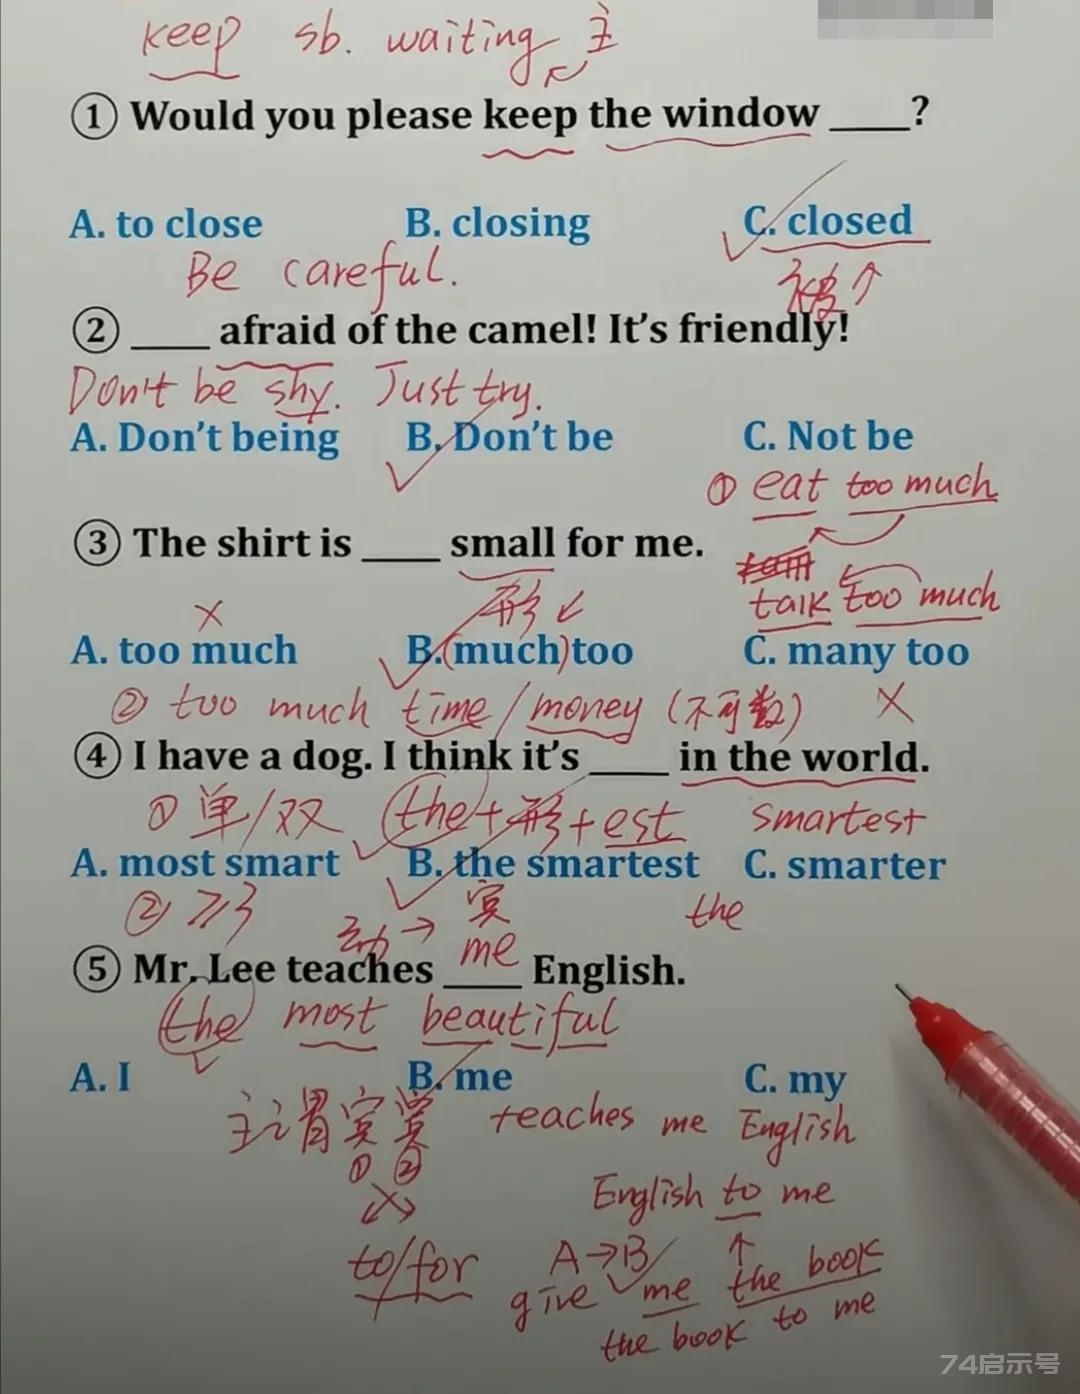 keep sb. waiting 主
① Would you please keep the window ____?
A. to close B. closing C. closed
Be careful. 被
② ____ afraid of the camel! It's friendly!
Don't be shy. Just try.
A. Don't being B. Don't be C. Not be
① eat too much
③ The shirt is ____ small for me.
形 talk too much
A. too much B.(much)too C. many too
② too much time/money (不可数)
④ I have a dog. I think it's ____ in the world.
① 单/双 (the)+形+est smartest
A. most smart B. the smartest C. smarter
② ≥3 动→宾 the
me
⑤ Mr. Lee teaches ____ English.
(the) most beautiful
A. I B. me C. my
主谓宾宾 teaches me English
① ②
English to me
to/for A→B
give me the book
the book to me
74启示号